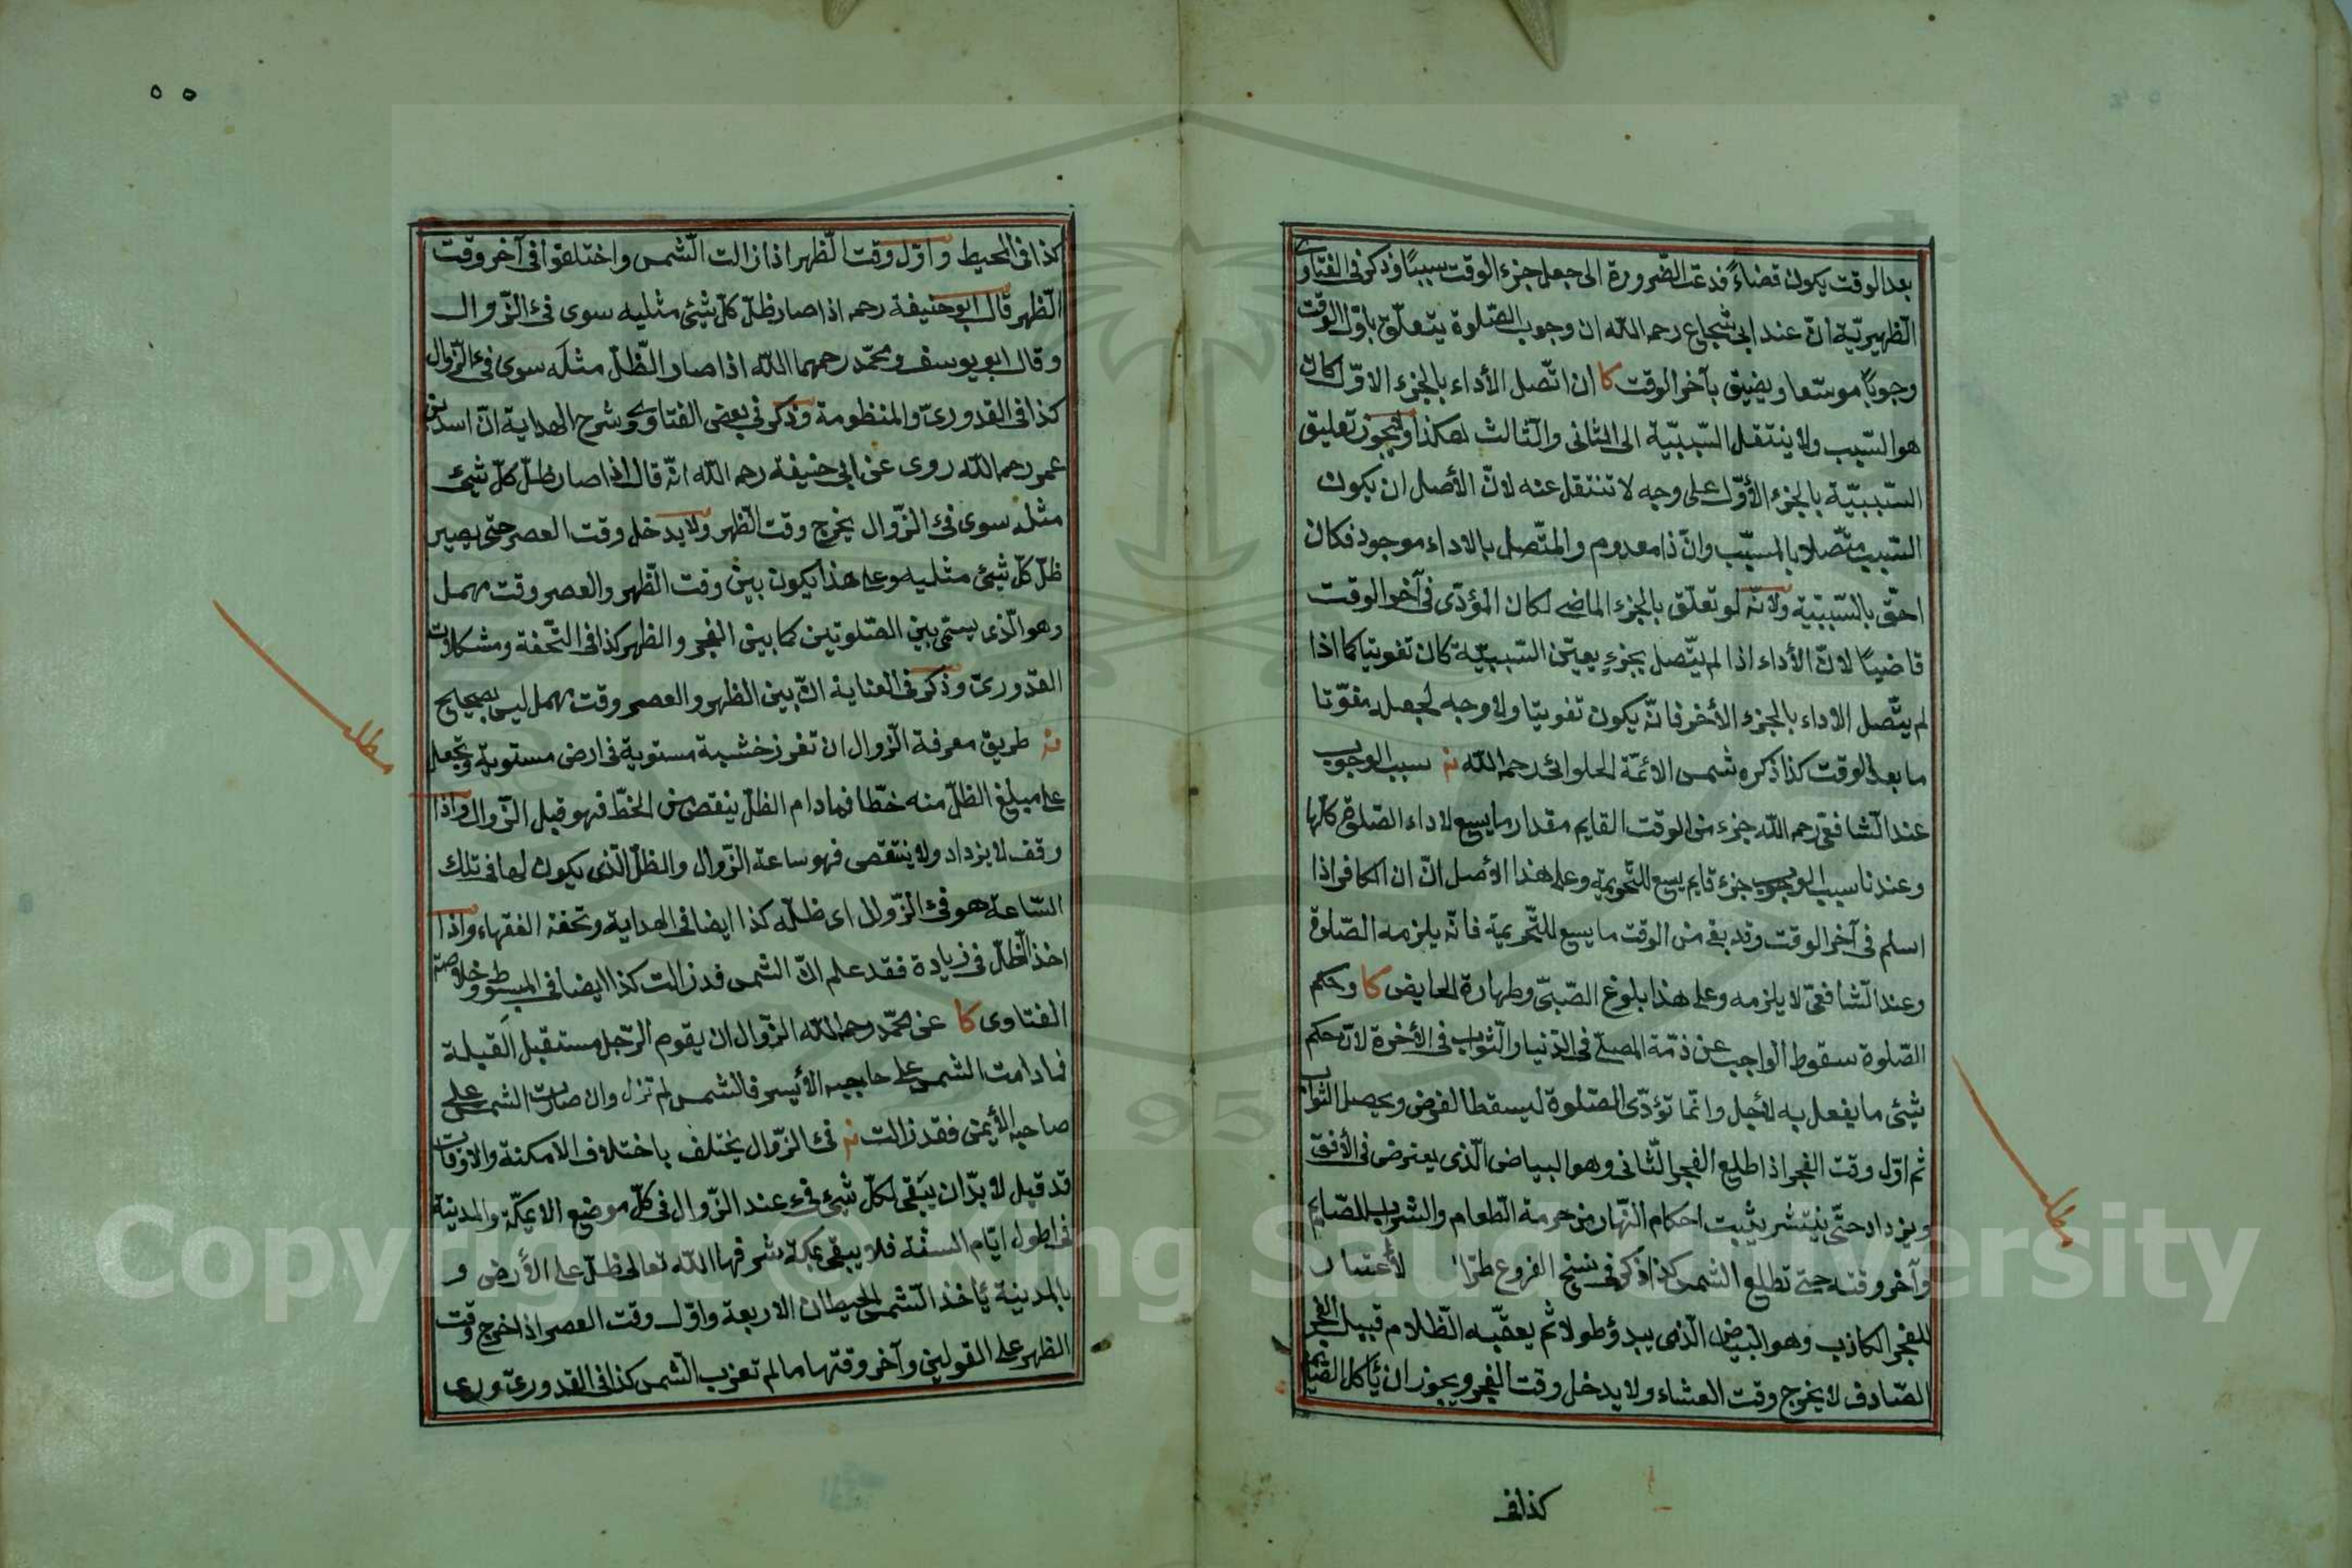 بعد الوقت يكون قضاءً فدعت الضّرورة الى جعل جزء الوقت سببًا وذكر فى الفتاوى
الظهيريّة انّ عند ابى شجاع رحمه الله ان وجوب الصّلوة يتعلّق باوّل الوقت
وجوبًا موسّعا ويضيق بآخر الوقت كا ان اتّصل الأداء بالجزء الاوّل كان
هو السّبب ولا ينتقل السّببيّة الى الثانى والثالث هكذا ولا يجوز تعليق
السّببيّة بالجزء الأوّل على وجه لا تنتقل عنه لانّ الأصل ان يكون
السّبب متّصلا بالمسبّب وانّ ذا معدوم والمتّصل بالاداء موجود فكان
احقّ بالسّببيّة ولانّه لو تعلّق بالجزء الماضى لكان المؤدّى فى آخر الوقت
قاضيًا لانّ الأداء اذا لم يتّصل بجزءٍ يعيّن السّببيّة كان تفويتا كما اذا
لم يتّصل الاداء بالجزء الأخر فانّه يكون تفويتا ولا وجه لجعله مفوّتا
ما بعد الوقت كذا ذكره شمس الائمّة الحلوائى رحمه الله سبب الوجوب
عند الشّافعى رحمه الله جزء من الوقت القايم مقدار ما يسع لاداء الصّلوة كلّها
وعندنا سبب الوجوب جزء قايم يسع للتّحريمة وعلى هذا الأصل انّ الكافر اذا
اسلم فى آخر الوقت وقد بقى من الوقت ما يسع للتّحريمة فانّه يلزمه الصّلوة
وعند الشّافعىّ لا يلزمه وعلى هذا بلوغ الصّبىّ وطهارة الحايض كا وحكم
الصّلوة سقوط الواجب عن ذمّة المصلّى فى الدّنيا والثّواب فى الأخرة لانّ حكم
شيئ ما يفعل به لأجل وانّما تؤدّى الصّلوة ليسقط الفرض ويحصل الثواب
ثم اوّل وقت الفجر اذا طلع الفجر الثّانى وهو البياض الّذى يعترض فى الأفق
ويزداد حتّى ينتشر يثبت احكام النّهار من حرمة الطّعام والشراب للصّايم
وآخر وقته حتى تطلع الشمس كذا ذكر فى نسخ الفروع طرّا لا اعتبار
للفجر الكاذب وهو البياض الّذى يبدؤ طولا ثم يعقّبه الظّلام قبيل الفجر
الصّادق لا يخرج وقت العشاء ولا يدخل وقت الفجر ويجوز ان يأكل الصّايم
مطلب
كذا فى
٥٥
كذا فى المحيط واوّل وقت الظهر اذا زالت الشّمس واختلفوا فى آخر وقت
الظهر قال ابو حنيفة رحمه اذا صار ظلّ كلّ شيئ مثليه سوى فئ الزّوال
وقال ابو يوسف ومحمّد رحمهما الله اذا صار الظّلّ مثله سوى فئ الزوال
كذا فى القدورىّ والمنظومة وذكر فى بعض الفتاوى وشرح الهداية انّ اسد بن
عمر رحمه الله روى عن ابى حنيفة رحمه الله انّه قال اذا صار ظلّ كلّ شيئ
مثله سوى فئ الزّوال يخرج وقت الظهر ولا يدخل وقت العصر حتى يصير
ظلّ كلّ شيئ مثليه وعلى هذا يكون بين وقت الظّهر والعصر وقت مهمل
وهو الّذى يسمّى بين الصّلوتين كما بين الفجر والظهر كذا فى التّحفة ومشكلات
القدورىّ وذكر فى العناية انّ بين الظهر والعصر وقت مهمل ليس بصحيح
طريق معرفة الزّوال ان تغرز خشبة مستوية فى ارض مستوية وتجعل
على مبلغ الظلّ منه خطّا فما دام الظلّ ينقص من الخطّ فهو قبل الزّوال واذا
وقف لا يزداد ولا ينتقص فهو ساعة الزّوال والظلّ الّذى يكون لها فى تلك
السّاعة هو فئ الزّوال اى ظلّه كذا ايضا فى الهداية وتحفة الفقهاء واذا
اخذ الظلّ فى زيادة فقد علم انّ الشمس قد زالت كذا ايضا فى المبسوط وخلاصة
الفتاوى كا عن محمّد رحمه الله الزّوال ان يقوم الرّجل مستقبل القبلة
فما دامت الشمس على حاجبه الأيسر فالشمس لم تزل وان صارت الشمس على
صاحبه الأيمن فقد زالت فئ الزّوال يختلف باختلاف الامكنة والاوقات
قد قيل لا بدّ ان يبقى لكلّ شيئ فئ عند الزّوال فى كلّ موضع الا بمكّة والمدينة
فى اطول ايّام السنة فلا يبقى بمكة شرفها الله تعالى ظلّ على الأرض و
بالمدينة يأخذ الشّمس الحيطان الاربعة واوّل وقت العصر اذا خرج وقت
الظهر على القولين وآخر وقتها ما لم تغرب الشمس كذا فى القدورىّ وروى
مطلب
Copyright © King Saud University